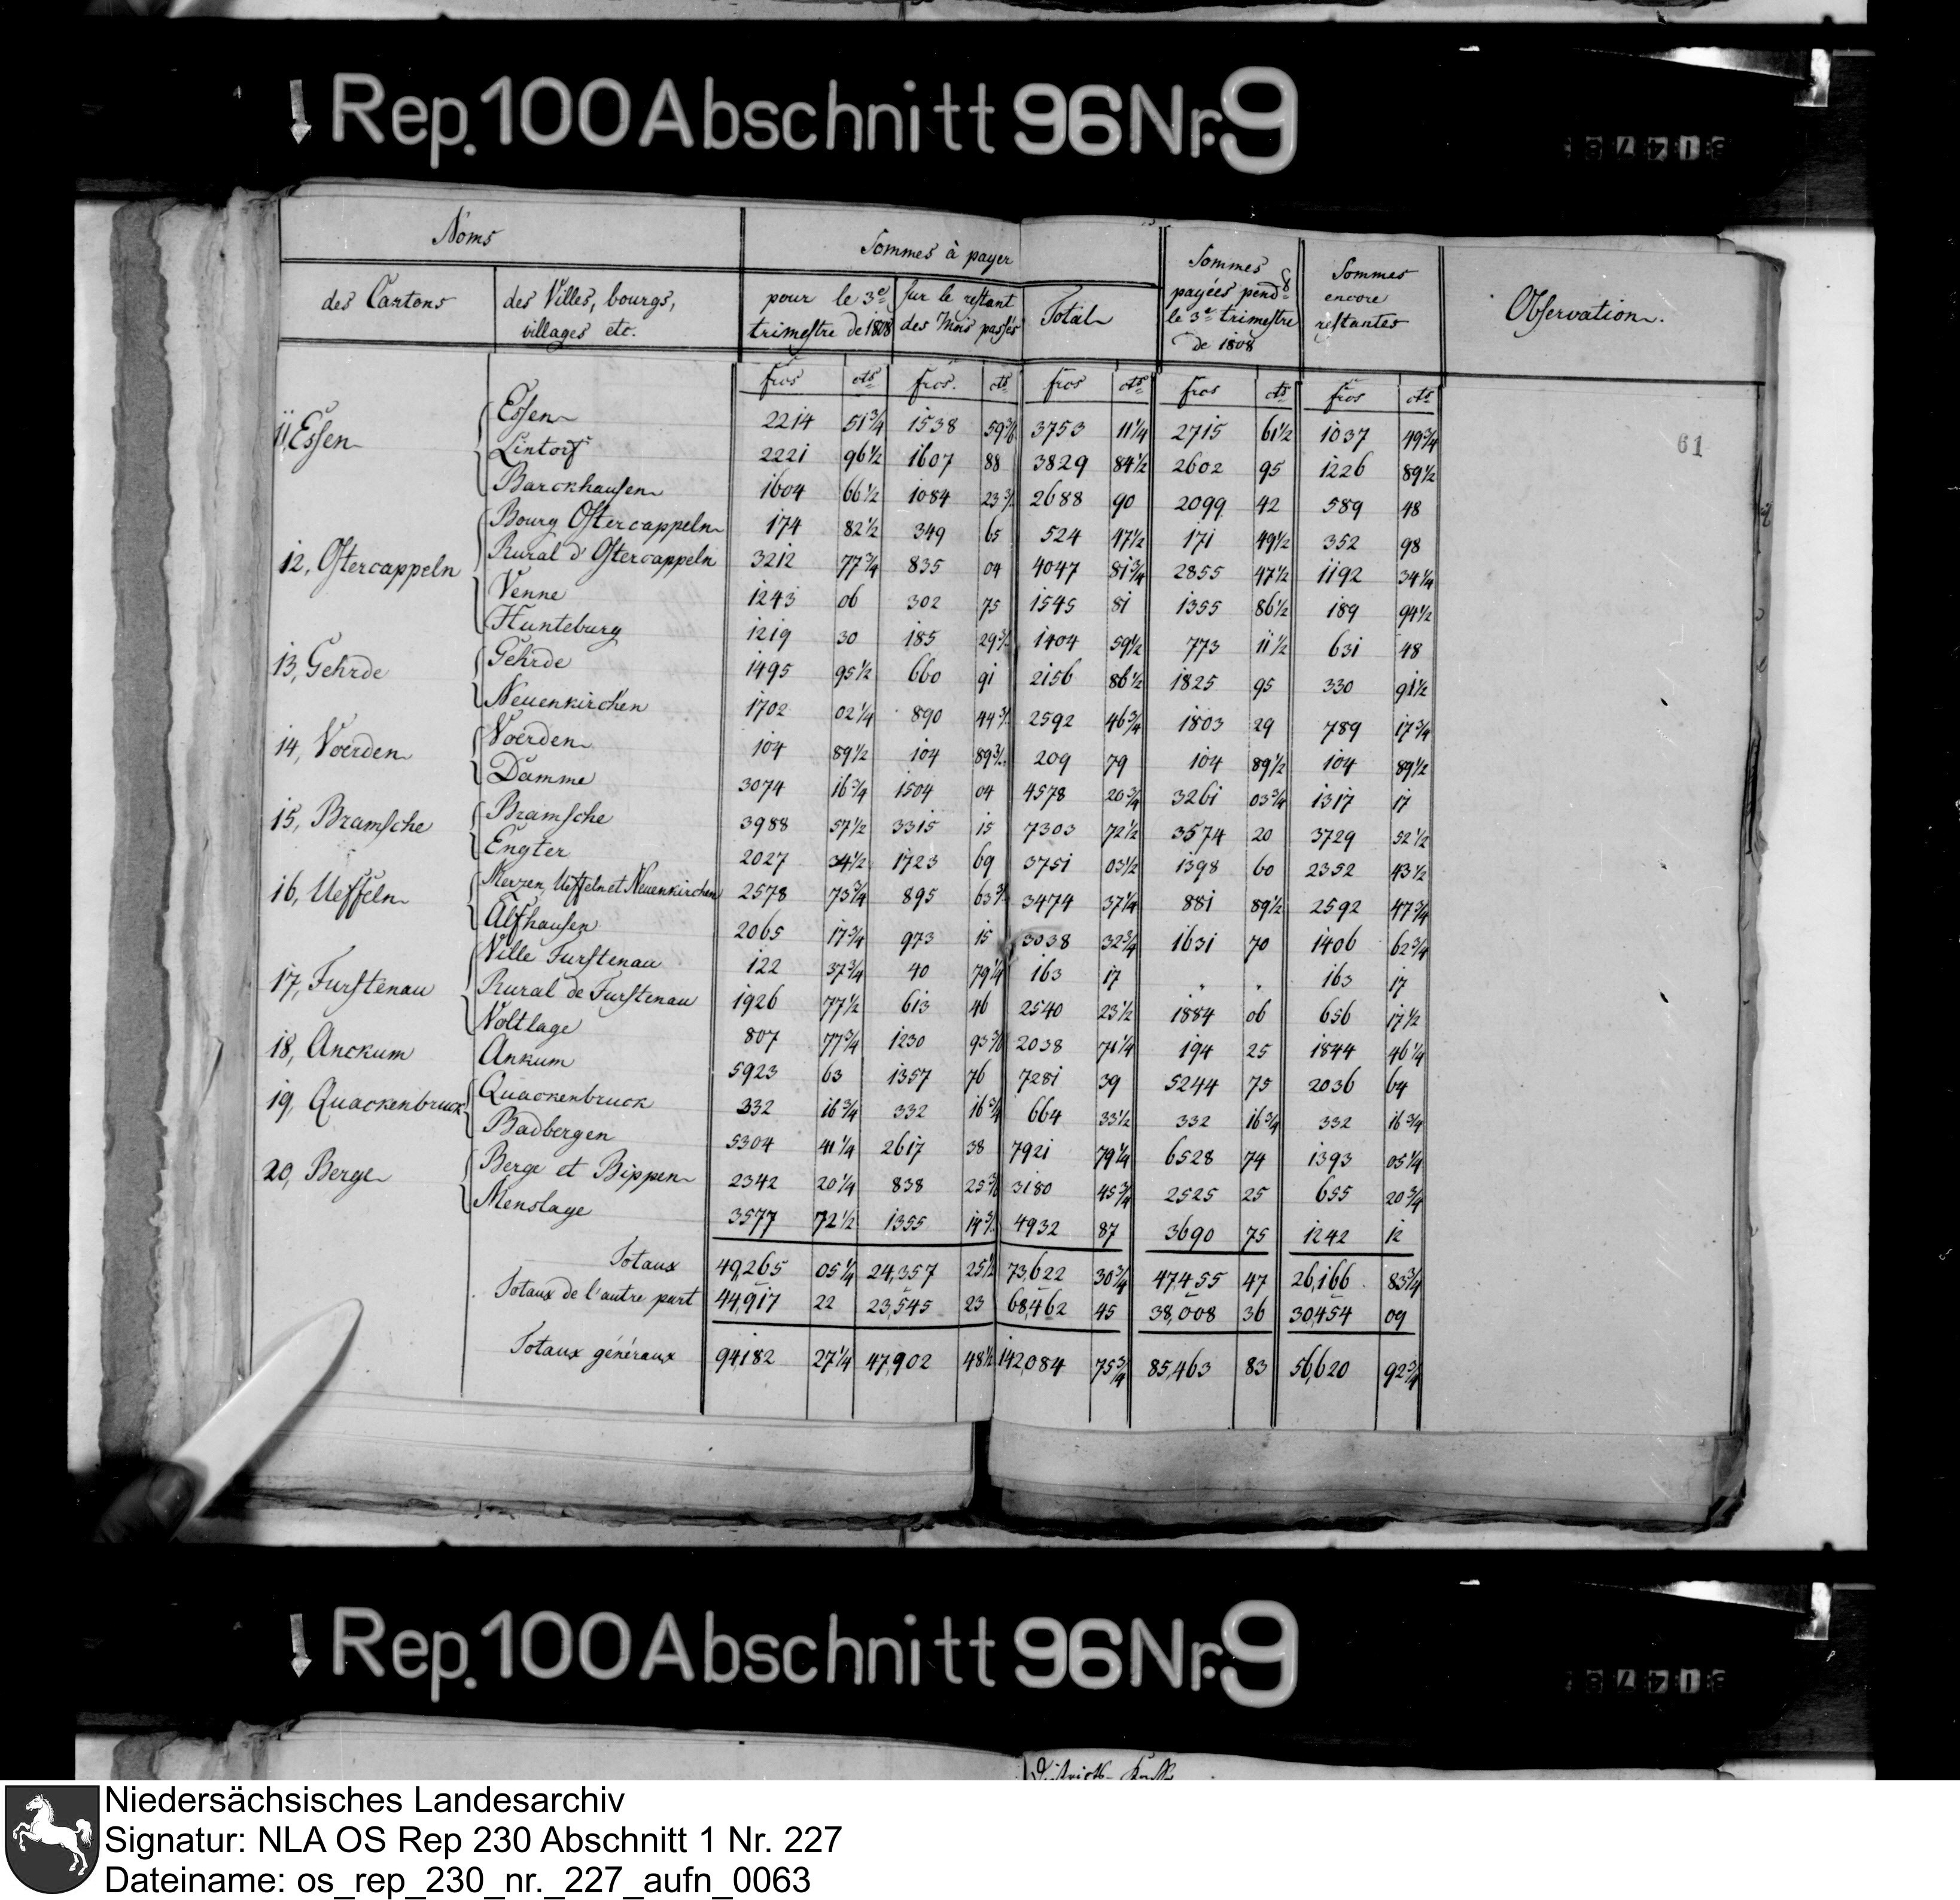 Rep. 100 Abschnitt 96 Nr. 9
Noms
Sommes à payer
Sommes payées pend.t le 3.e trimestre de 1808
Sommes encore restantes
Observation.
des Cantons
des Villes, bourgs, villages etc.
pour le 3.e trimestre de 1808
sur le restant des Mois passés
Total
frcs cts frcs. cts frcs cts frcs cts frcs cts
61
11, Essen Essen 2214 51¾ 1538 59¾ 3753 11¼ 2715 61½ 1037 49¾
Lintorf 2221 96½ 1607 88 3829 84½ 2602 95 1226 89½
Barckhausen 1604 66½ 1084 23 2688 90 2099 42 589 48
12, Ostercappeln Bourg Ostercappeln 174 82½ 349 65 524 47½ 171 49½ 352 98
Rural d'Ostercappeln 3212 77¾ 835 04 4047 81¾ 2855 47½ 1192 34¼
Venne 1243 06 302 75 1545 81 1355 86½ 189 94½
Hunteburg 1219 30 185 29 1404 59½ 773 11½ 631 48
13, Gehrde Gehrde 1495 95½ 660 91 2156 86½ 1825 95 330 91½
Neuenkirchen 1702 02¼ 890 44 2592 46¾ 1803 29 789 17¾
14, Voerden Voerden 104 89½ 104 89 209 79 104 89½ 104 89½
Damme 3074 16¾ 1504 04 4578 20¾ 3261 03¾ 1317 17
15, Bramsche Bramsche 3988 57½ 3315 15 7303 72½ 3574 20 3729 52½
Engter 2027 34½ 1723 69 3751 03½ 1398 60 2352 43½
16, Ueffeln Merzen, Ueffeln et Neuenkirchen 2578 73¾ 895 63 3474 37¼ 881 89½ 2592 47¾
Alfhausen 2065 17¾ 973 15 3038 32¾ 1631 70 1406 62¾
17, Furstenau Ville Furstenau 122 37¾ 40 79¼ 163 17 " " 163 17
Rural de Furstenau 1926 77½ 613 46 2540 23½ 1884 06 656 17½
Voltlage 807 77¾ 1230 93 2038 71¼ 194 25 1844 46¼
18, Anckum Ankum 5923 63 1357 76 7281 39 5244 75 2036 64
19, Quackenbruck Quackenbruck 332 16¾ 332 16¾ 664 33½ 332 16¾ 332 16¾
Badbergen 5304 41¼ 2617 38 7921 79¼ 6528 74 1393 05¼
20, Berge Berge et Bippen 2342 20¼ 838 25 3180 45¾ 2525 25 655 20¾
Menslage 3577 72½ 1355 14 4932 87 3690 75 1242 12
Totaux 49,265 05¼ 24,357 25½ 73,622 30¾ 47,455 47 26,166 83¾
Totaux de l'autre part 44,917 22 23,545 23 68,462 45 38,008 36 30,454 09
Totaux généraux 94,182 27¼ 47,902 48½ 142,084 75¾ 85,463 83 56,620 92¾
Rep. 100 Abschnitt 96 Nr. 9
Niedersächsisches Landesarchiv
Signatur: NLA OS Rep 230 Abschnitt 1 Nr. 227
Dateiname: os_rep_230_nr._227_aufn_0063